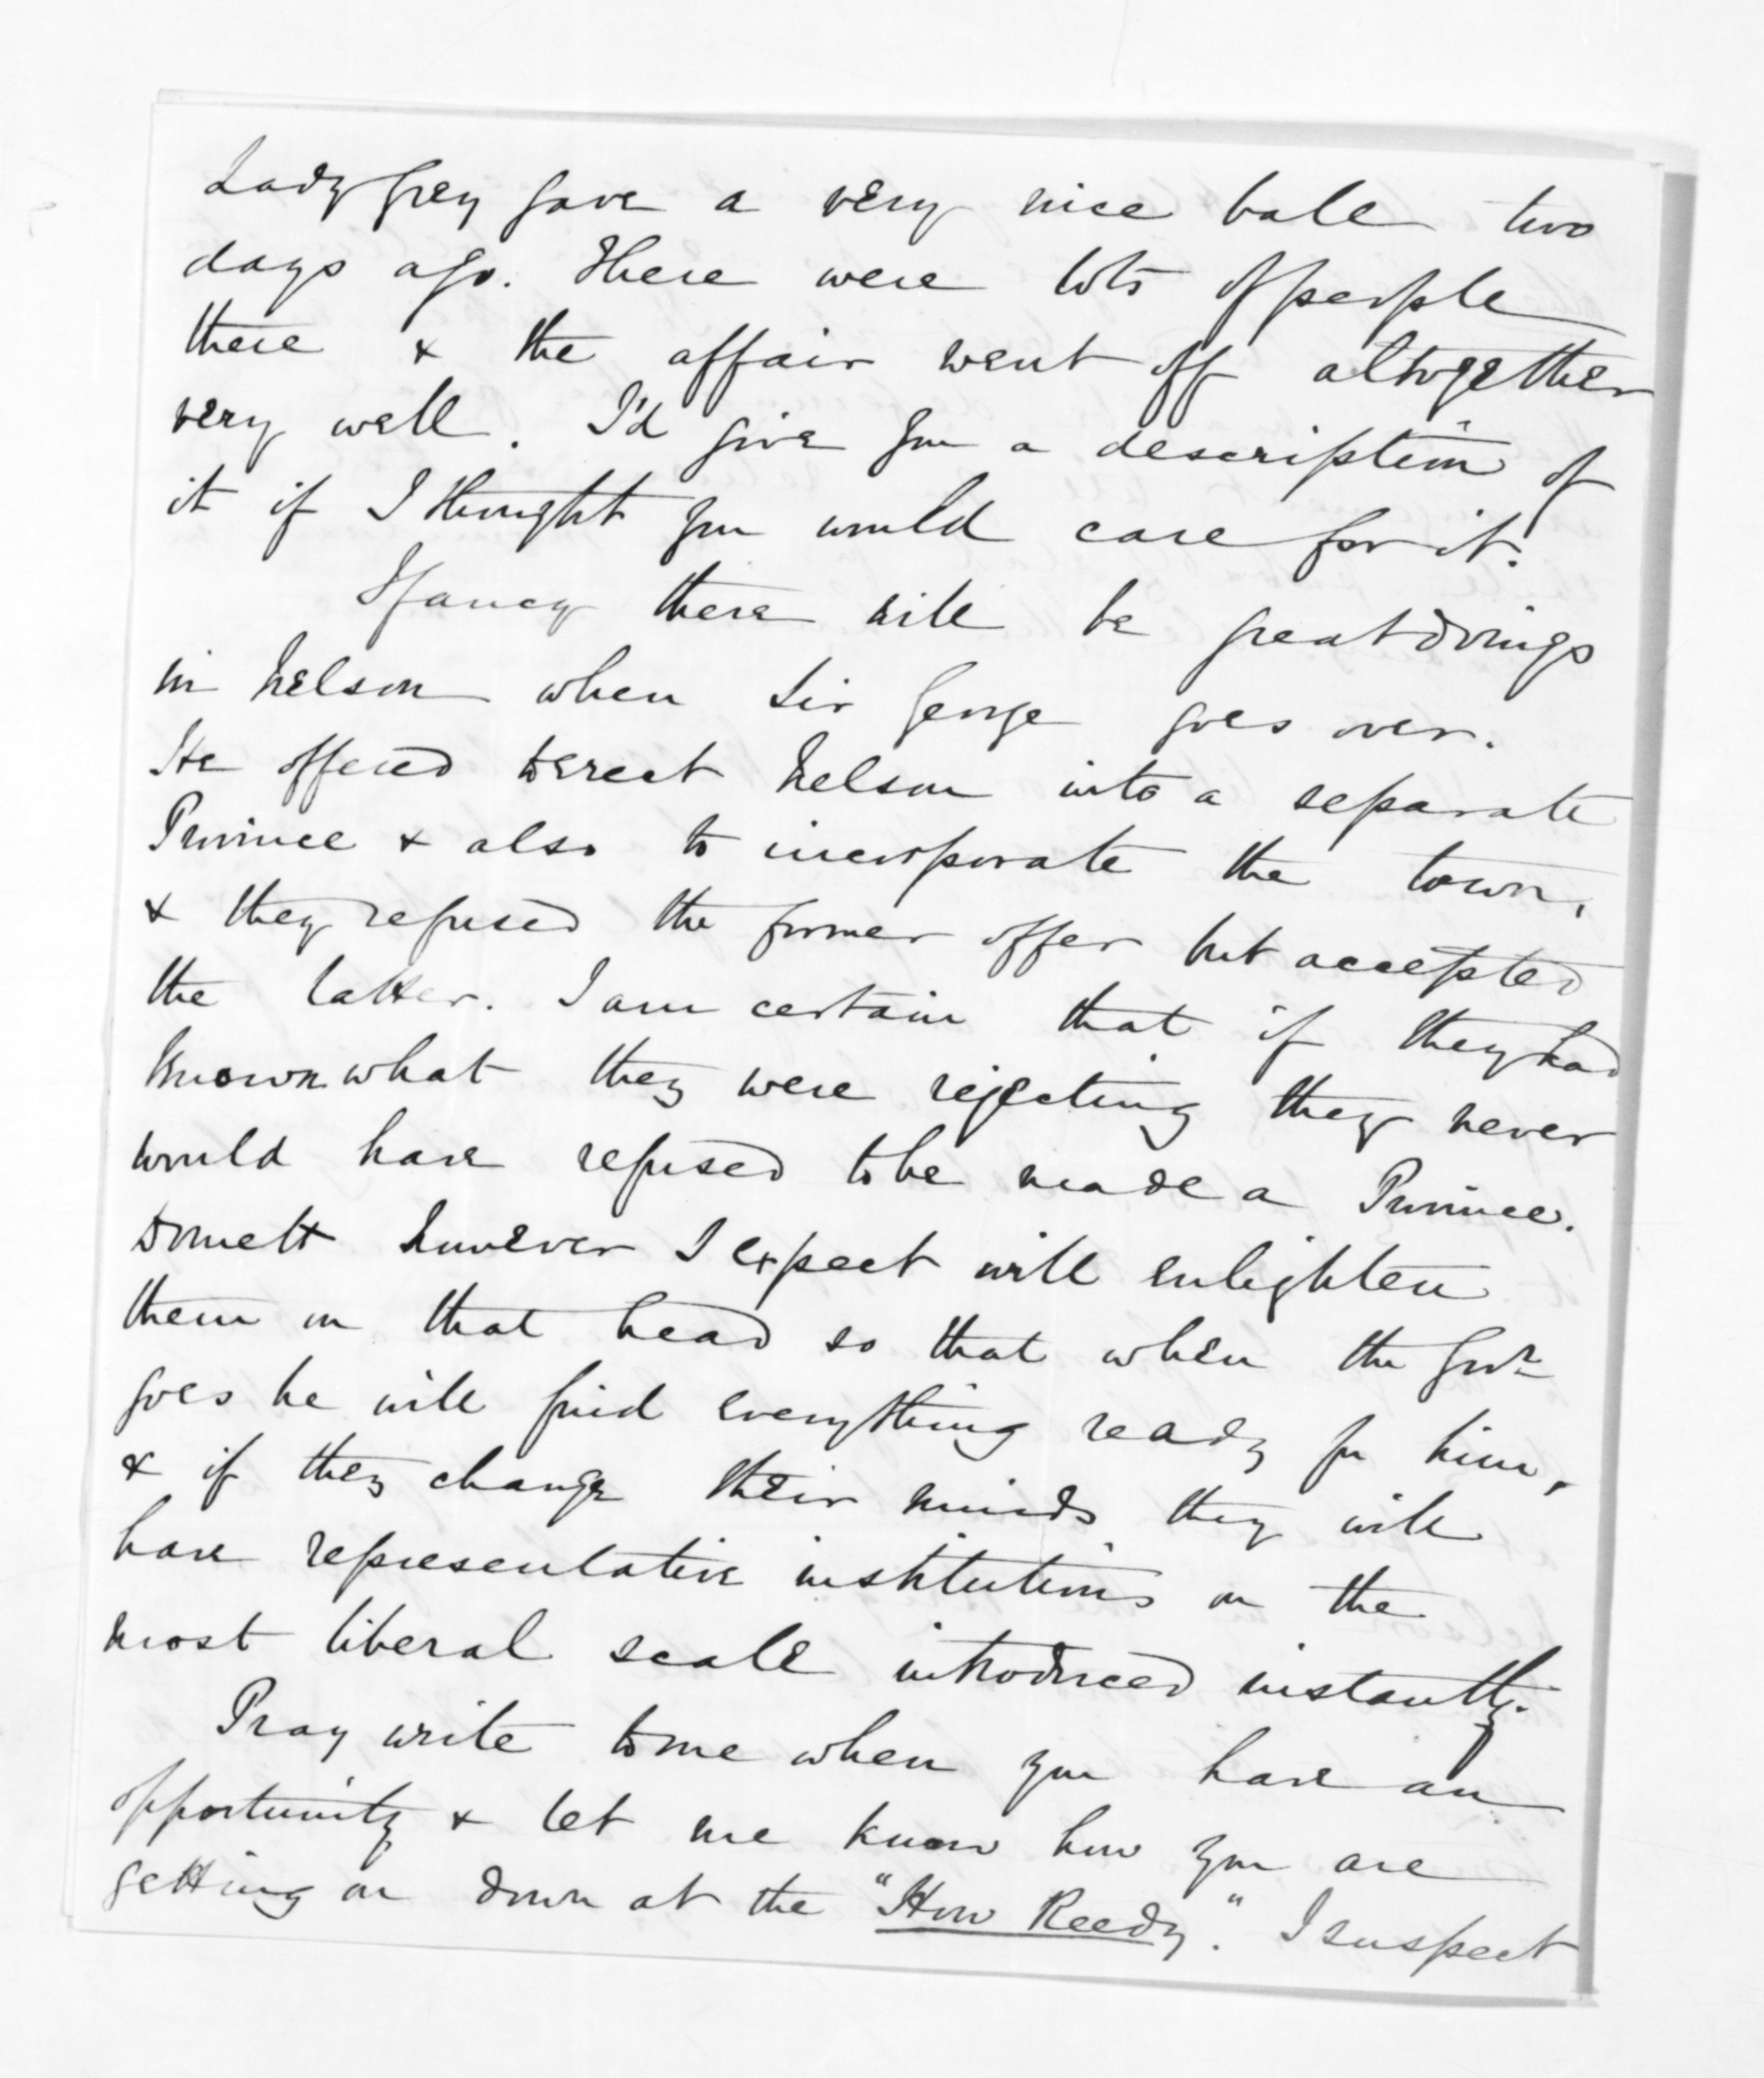 Lady Grey gave a very nice ball two
days ago. There were lots of people
there & the affair went off altogether
very well. I'd give you a description of
it if I thought you would care for it.
I fancy there will be great doings
in Nelson when Sir George goes over.
He offered to erect Nelson into a separate
Province & also to incorporate the town,
& they refused the former offer but accepted
the latter. I am certain that if they had
known what they were rejecting they never
would have refused to be made a Province.
Domett however I expect will enlighten
them on that head so that when the Govr
goes he will find everything ready for him,
& if they change their minds they will
have representative institutions on the
most liberal scale introduced instantly.
Pray write to me when you have an
opportunity & let me know how you are
getting on down at the "How Reedy". I suspect